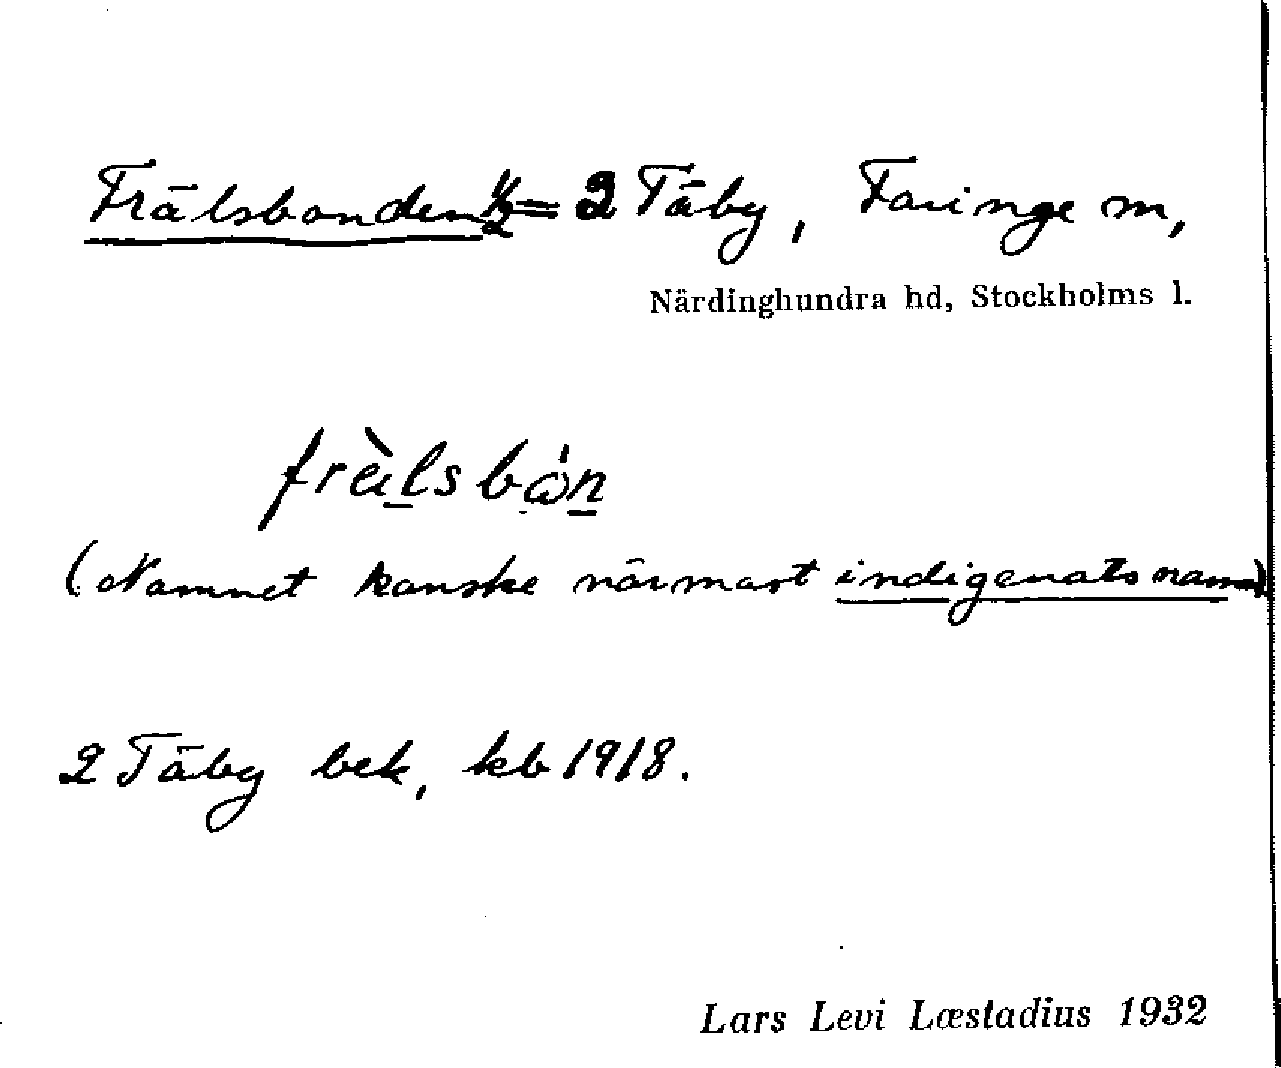 Frälsbonden ½ = 2 Täby, Faringe m,
Närdinghundra hd, Stockholms l.
frä̀lsbón
(Namnet kanske närmast indigenatsnamn)
2 Täby bek, kb 1918.
Lars Levi Læstadius 1932